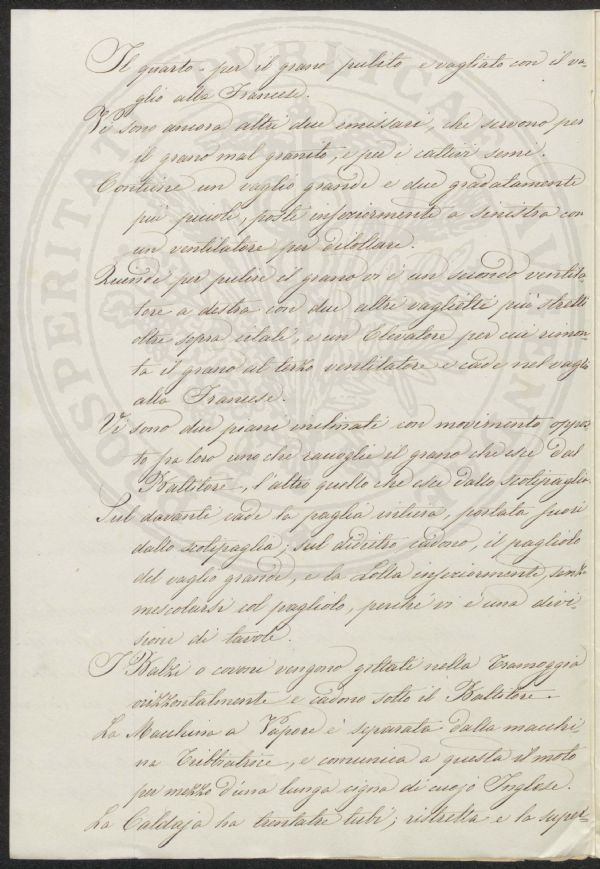 Il quarto per il grano pulito e vagliato con il va-
glio alla Francese.
Vi sono ancora altri due emissari, che servono per
il grano mal granito, e per i cattivi semi.
Contiene un vaglio grande e due gradatamente
più piccoli, posti inferiormente a sinistra con
un ventilatore per dilollare.
Quindi per pulire il grano vi è un secondo ventila-
tore a destra con due altri vaglietti più stretti
oltre sopra citati, e un Elevatore per cui rimon-
ta il grano al terzo ventilatore e cade nel vaglio
alla Francese.
Vi sono due piani inclinati con movimento oppo-
to fra loro uno che raccoglie il grano che esce dal
Battitore, l'altro quello che esce dallo scotipaglia.
Sul davanti cade la paglia intiera, portata fuori
dallo scotipaglia; sul dietro cadono, il pagliolo
del vaglio grande, e la Lolla inferiormente, senza
mescolarsi col pagliolo, perchè vi è una divi-
sione di tavole.
I Balzi o covoni vengono gettati nella Tramoggia
orizzontalmente e cadono sotto il Battitore.
La Macchina a Vapore è separata dalla macchi-
na Tribbiatrice, e comunica a questa il moto
per mezzo d'una lunga cigna di cuojo Inglese.
La Caldaja ha trentatre tubi; ristretta e la super-
PROSPERITAT PUBLICA